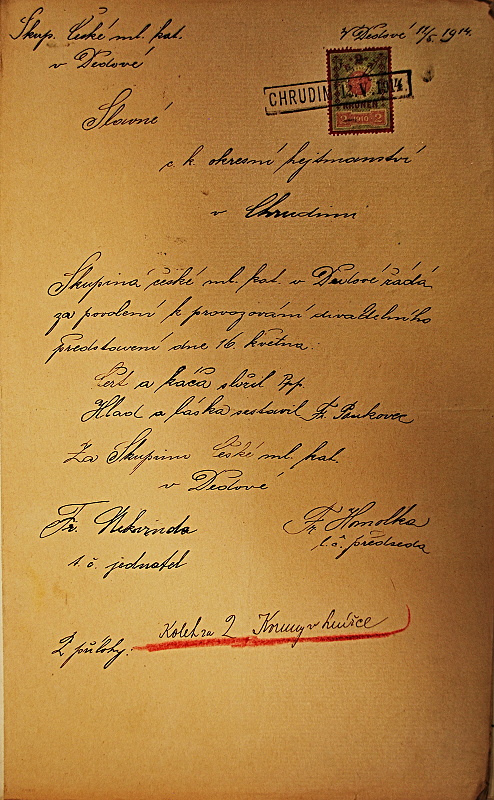 Skup. České ml. kat.
v Dědové
V Dědové 12/5 1914.
CHRUDIM 12. V 1914.
2
KRONEN
2 1910 2
Slavné
c. k. okresní hejtmanství
v Chrudimi
Skupina české ml. kat. v Dědové žádá
za povolení k provozování divadelního
představení dne 16. května:
Čert a káča složil
Hlad a láska sestavil Fr.
Za Skupinu České ml. kat.
v Dědové
Fr. Nekvinda
t. č. jednatel
Fr. Homolka
t. č. předseda
2 přílohy.
Kolek za 2 Koruny v